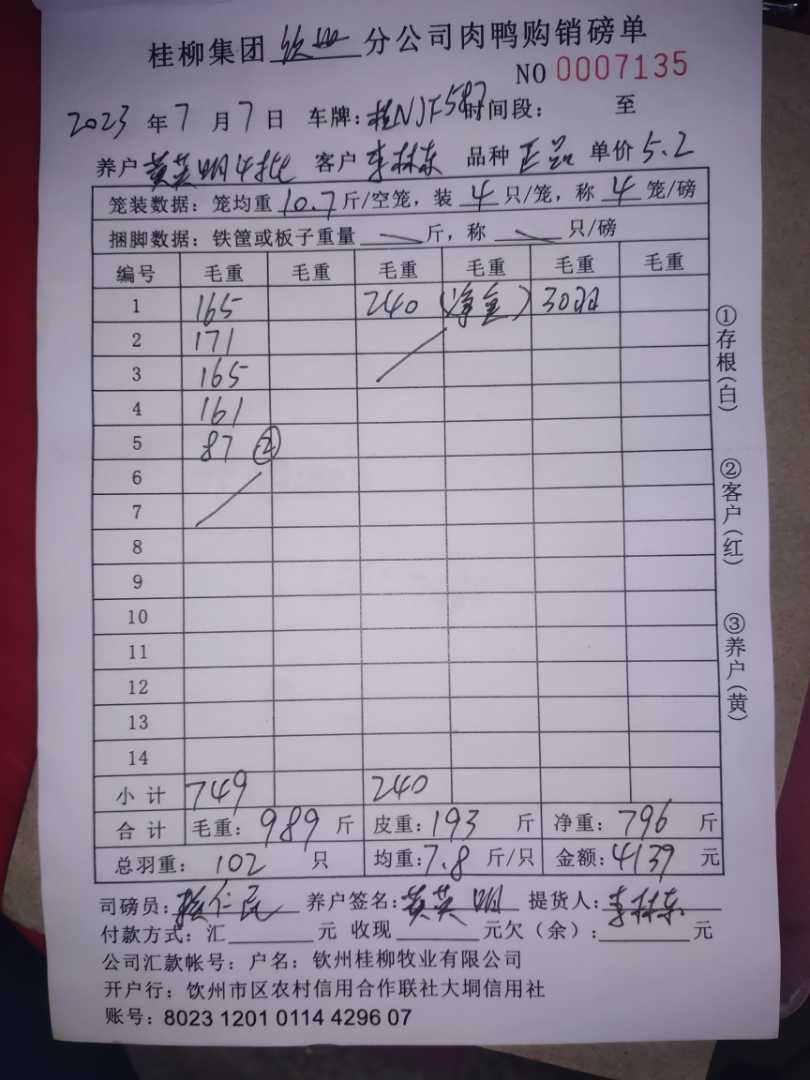 桂柳集团 钦州 分公司肉鸭购销磅单
NO 0007135
2023 年 7 月 7 日 车牌: 桂NJF587 时间段: 至
养户 黄英明4批 客户 李林东 品种 正品 单价 5.2
笼装数据: 笼均重 10.7 斤/空笼, 装 4 只/笼, 称 4 笼/磅
捆脚数据: 铁筐或板子重量 斤, 称 只/磅
编号 毛重 毛重 毛重 毛重 毛重 毛重
1 165 240 (净重) 30羽
2 171
3 165
4 161
5 87 ②
6
7
8
9
10
11
12
13
14
小计 749 240
合计 毛重: 989 斤 皮重: 193 斤 净重: 796 斤
总羽重: 102 只 均重: 7.8 斤/只 金额: 4139 元
司磅员: 仁民 养户签名: 黄英明 提货人: 李林东
付款方式: 汇 元 收现 元欠(余): 元
公司汇款帐号: 户名: 钦州桂柳牧业有限公司
开户行: 钦州市区农村信用合作联社大垌信用社
账号: 8023 1201 0114 4296 07
①存根(白)
②客户(红)
③养户(黄)